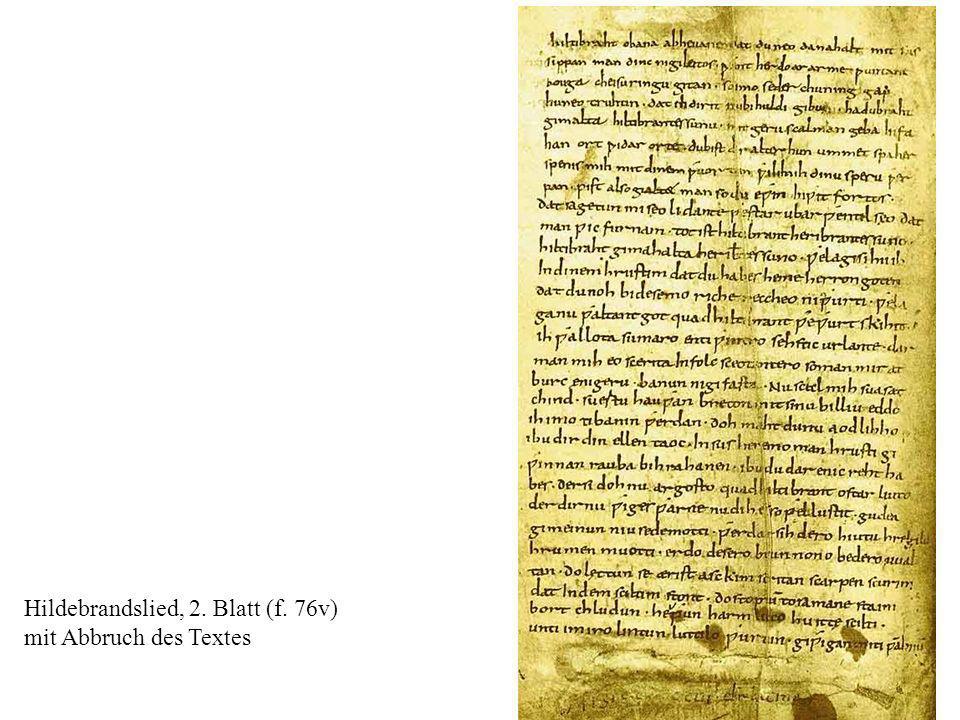 hiltibraht obana abheuane dat du neo danahalt mit sus
sippan man dinc nigileitos · ƿant her do ar arme ƿuntane
bouga cheisuringu gitan · so imo seder chuning gap
huneo truhtin · dat ih dir it nubi huldi gibu · hadubraht
gimalta hiltibrantes sunu · mit geru scal man geba infa
han ort ƿidar orte · du bist dir alter hun ummet spaher
spenis mih mit dinem ƿuortun ƿilihuh dinu speru ƿer
pan · pist also gialtet man so du eƿin inƿit fortos ·
dat sagetun mi seolidante ƿestar ubar ƿentilseo dat
man ƿic furnam · tot ist hiltibrant heribrantes suno ·
hiltibraht gimahalta heribtes suno · ƿela gisihu ih
In dinem hrustim dat du habes heme herron goten
dat du noh bi desemo riche reccheo niƿurti · ƿela
ga nu ƿaltant got quad hiltibrant ƿeƿurt skihit ·
ih ƿallota sumaro enti ƿintro sehstic ur lante · dar
man mih eo scerita In folc sceotantero so man mir at
burc enigeru · banun ni gifasta · Nu scal mih suasat
chind · suertu hauƿan breton mit sinu billiu eddo
ih imo ti banin ƿerdan · doh maht du nu aodlihho
ibu dir din ellen taoc · In sus heremo man hrusti gi
ƿinnan rauba bihrahanen · ibu du dar enic reht ha
bes · der si doh nu argosto quad hiltibrant ostar liuto
der dir nu ƿiges ƿarne nu dih es so ƿel lustit · gudea
gimeinun niuse de motti · ƿerdar sih dero hiutu hregilo
hrumen muotti · erdo desero brunnono bedero uual
tan · do lettun se ærist asckim scritan scarpen scurim
dat In dem sciltim stont · do stoptun tosamane staim
bort chludun · heƿun harmlicco huitte scilti ·
unti im iro lintun luttilo ƿurtun · giƿigan miti ƿabnum
Hildebrandslied, 2. Blatt (f. 76v)
mit Abbruch des Textes